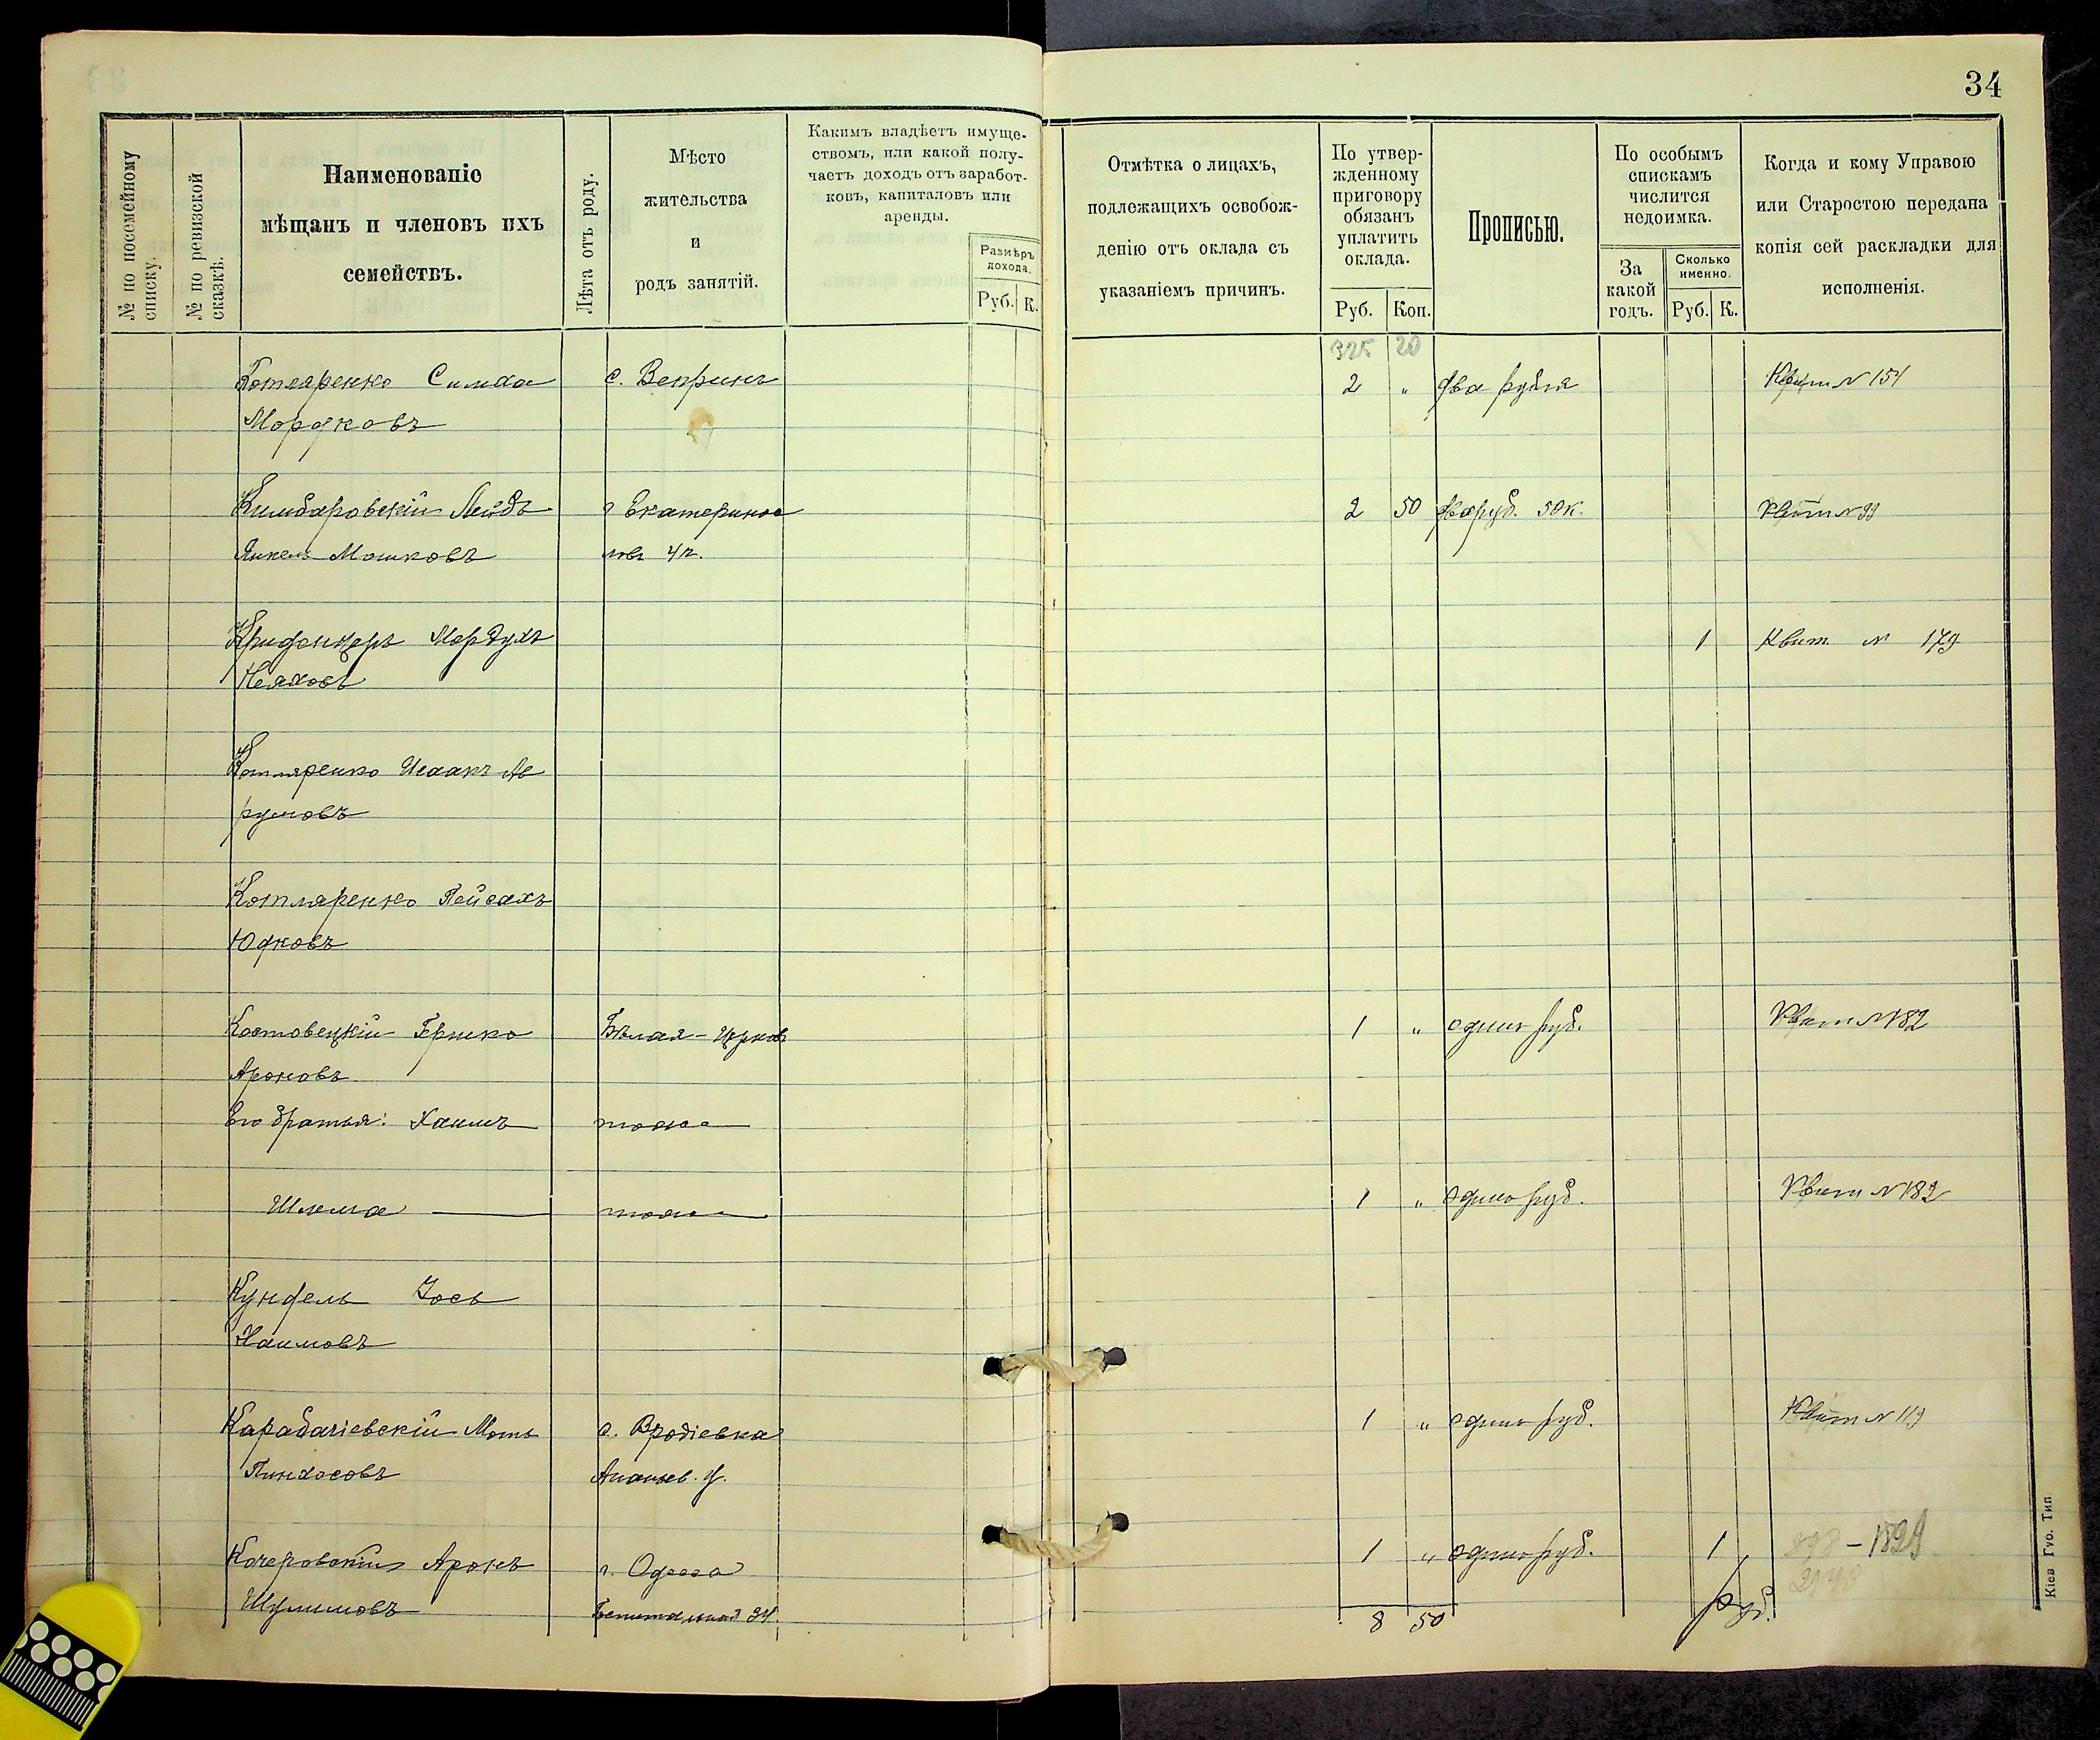 34
№ по посемейному списку.
№ по ревизской сказкѣ.
Наименованіе мѣщанъ и членовъ ихъ семействъ.
Лѣта отъ роду.
Мѣсто жительства и родъ занятій.
Какимъ владѣетъ имуще-
ствомъ, или какой полу-
чаетъ доходъ отъ заработ-
ковъ, капиталовъ или
аренды.
Размѣръ дохода.
Руб. К.
Отмѣтка о лицахъ,
подлежащихъ освобож-
денію отъ оклада съ
указаніемъ причинъ.
По утвер-
жденному
приговору
обязанъ
уплатить
оклада.
Руб. Коп.
Прописью.
По особымъ
спискамъ
числится
недоимка.
За какой годъ.
Сколько именно.
Руб. К.
Когда и кому Управою
или Старостою передана
копія сей раскладки для
исполненія.
325 20
Котляренко Симха с. Вепринъ 2 " два рубля Квит N 154
Мордковъ
Кимбаровскій Лейбъ г Екатеринос 2 50 два руб. 50 к. Квит N 99
Янкель Мошковъ
Мордухъ 1 Квит. N 179
Котляренко Исаакъ Ав
румовъ
Котляренко Пейсахъ
Юдковъ
Костовецкій Гершко Бѣлая-Церковь 1 " одинъ руб. Квит N 182
Ароновъ
Его братья: Хаимъ тоже
Шлема тоже 1 " одинъ руб. Квит N 182
Кундель Іось
Хаимовъ
Карабачіевскій Моть с. Вродіевка 1 " одинъ руб. Квит N 119
Пинхосовъ Ананьев. у.
Кочеровскій Аронъ г. Одесса 1 " одинъ руб. 1
Шулимовъ 34.
8 50
руб.
Кіев Гуо. Тип